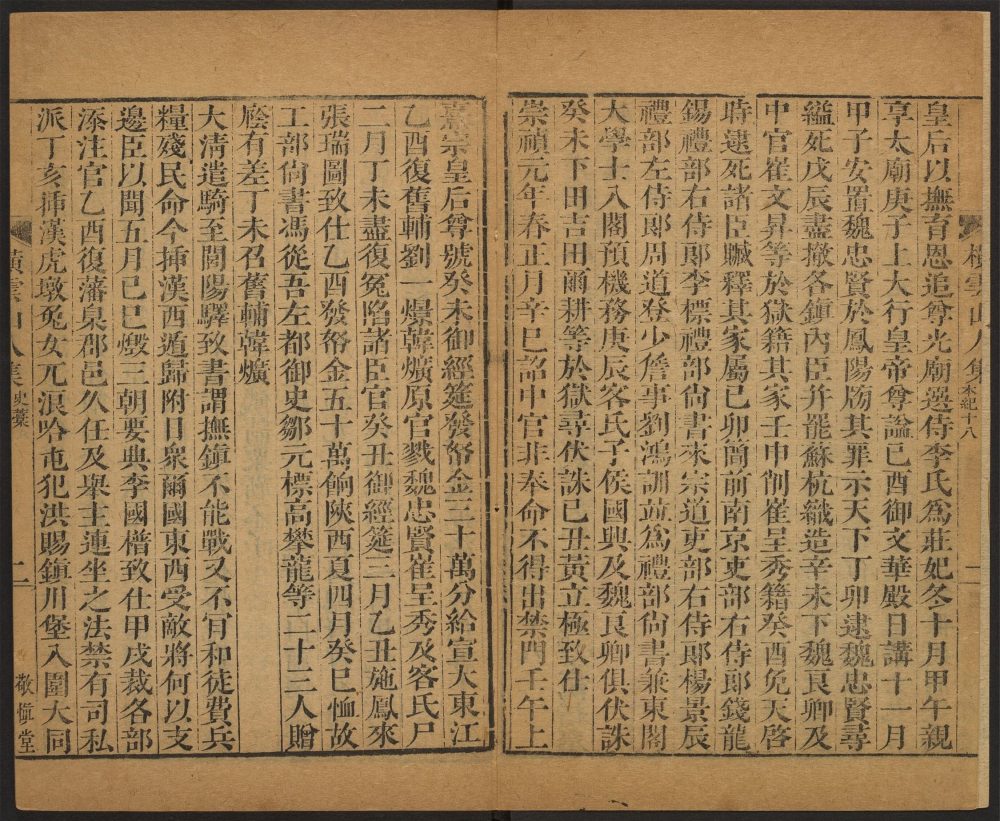 橫雲山人集 本紀十八
皇后以撫育恩追尊光廟選侍李氏爲莊妃冬十月甲午親
享太廟庚子上大行皇帝尊謚已酉御文華殿日講十一月
甲子安置魏忠賢於鳳陽牓其罪示天下丁卯逮魏忠賢尋
縊死戊辰盡撤各鎮內臣幷罷蘇杭織造辛未下魏良卿及
中官崔文昇等於獄籍其家壬申削崔呈秀籍癸酉免天啓
時逮死諸臣贓釋其家屬已卯簡前南京吏部右侍郎錢龍
錫禮部右侍郎李標禮部尙書來宗道吏部右侍郎楊景辰
禮部左侍郎周道登少詹事劉鴻訓竝爲禮部尙書兼東閣
大學士入閣預機務庚辰客氏子侯國興及魏良卿俱伏誅
癸未下田吉田爾耕等於獄尋伏誅已丑黃立極致仕
崇禎元年春正月辛巳詔中官非奉命不得出禁門壬午上
二
熹宗皇后尊號癸未御經筵發帑金三十萬分給宣大東江
乙酉復舊輔劉一燝韓爌原官戮魏忠賢崔呈秀及客氏尸
二月丁未盡復冤陷諸臣官癸丑御經筵三月乙丑施鳳來
張瑞圖致仕乙酉發帑金五十萬餉陝西夏四月癸巳恤故
工部尙書馮從吾左都御史鄒元標高攀龍等二十三人贈
廕有差丁未召舊輔韓爌
大清遣騎至閭陽驛致書謂撫鎮不能戰又不肯和徒費兵
糧殘民命今揷漢西遁歸附日衆爾國東西受敵將何以支
邊臣以聞五月已巳燬三朝要典李國𣚴致仕甲戌裁各部
添注官乙酉復藩臬郡邑久任及舉主連坐之法禁有司私
派丁亥揷漢虎墩兔女兀浪哈屯犯洪賜鎮川堡入圍大同
橫雲山人集 史藁
二
敬愼堂